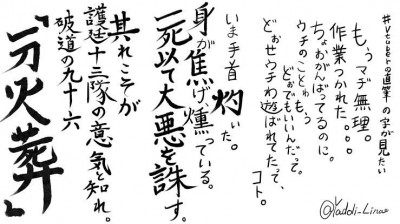 #Vtuberの直筆の字が見たい
もぅマヂ無理。
作業つかれた。。。
ちょおがんばってるのに
ウチのことゎもぅ
どぉでもいいんだって。
どぉせウチゎ遊ばれてたって、
コト。
いま手首灼いた。
身が焦げ、燻っている。
一死以て大悪を誅す。
其れこそが
護廷十三隊の意気と知れ。
破道の九十六
『一刀火葬』